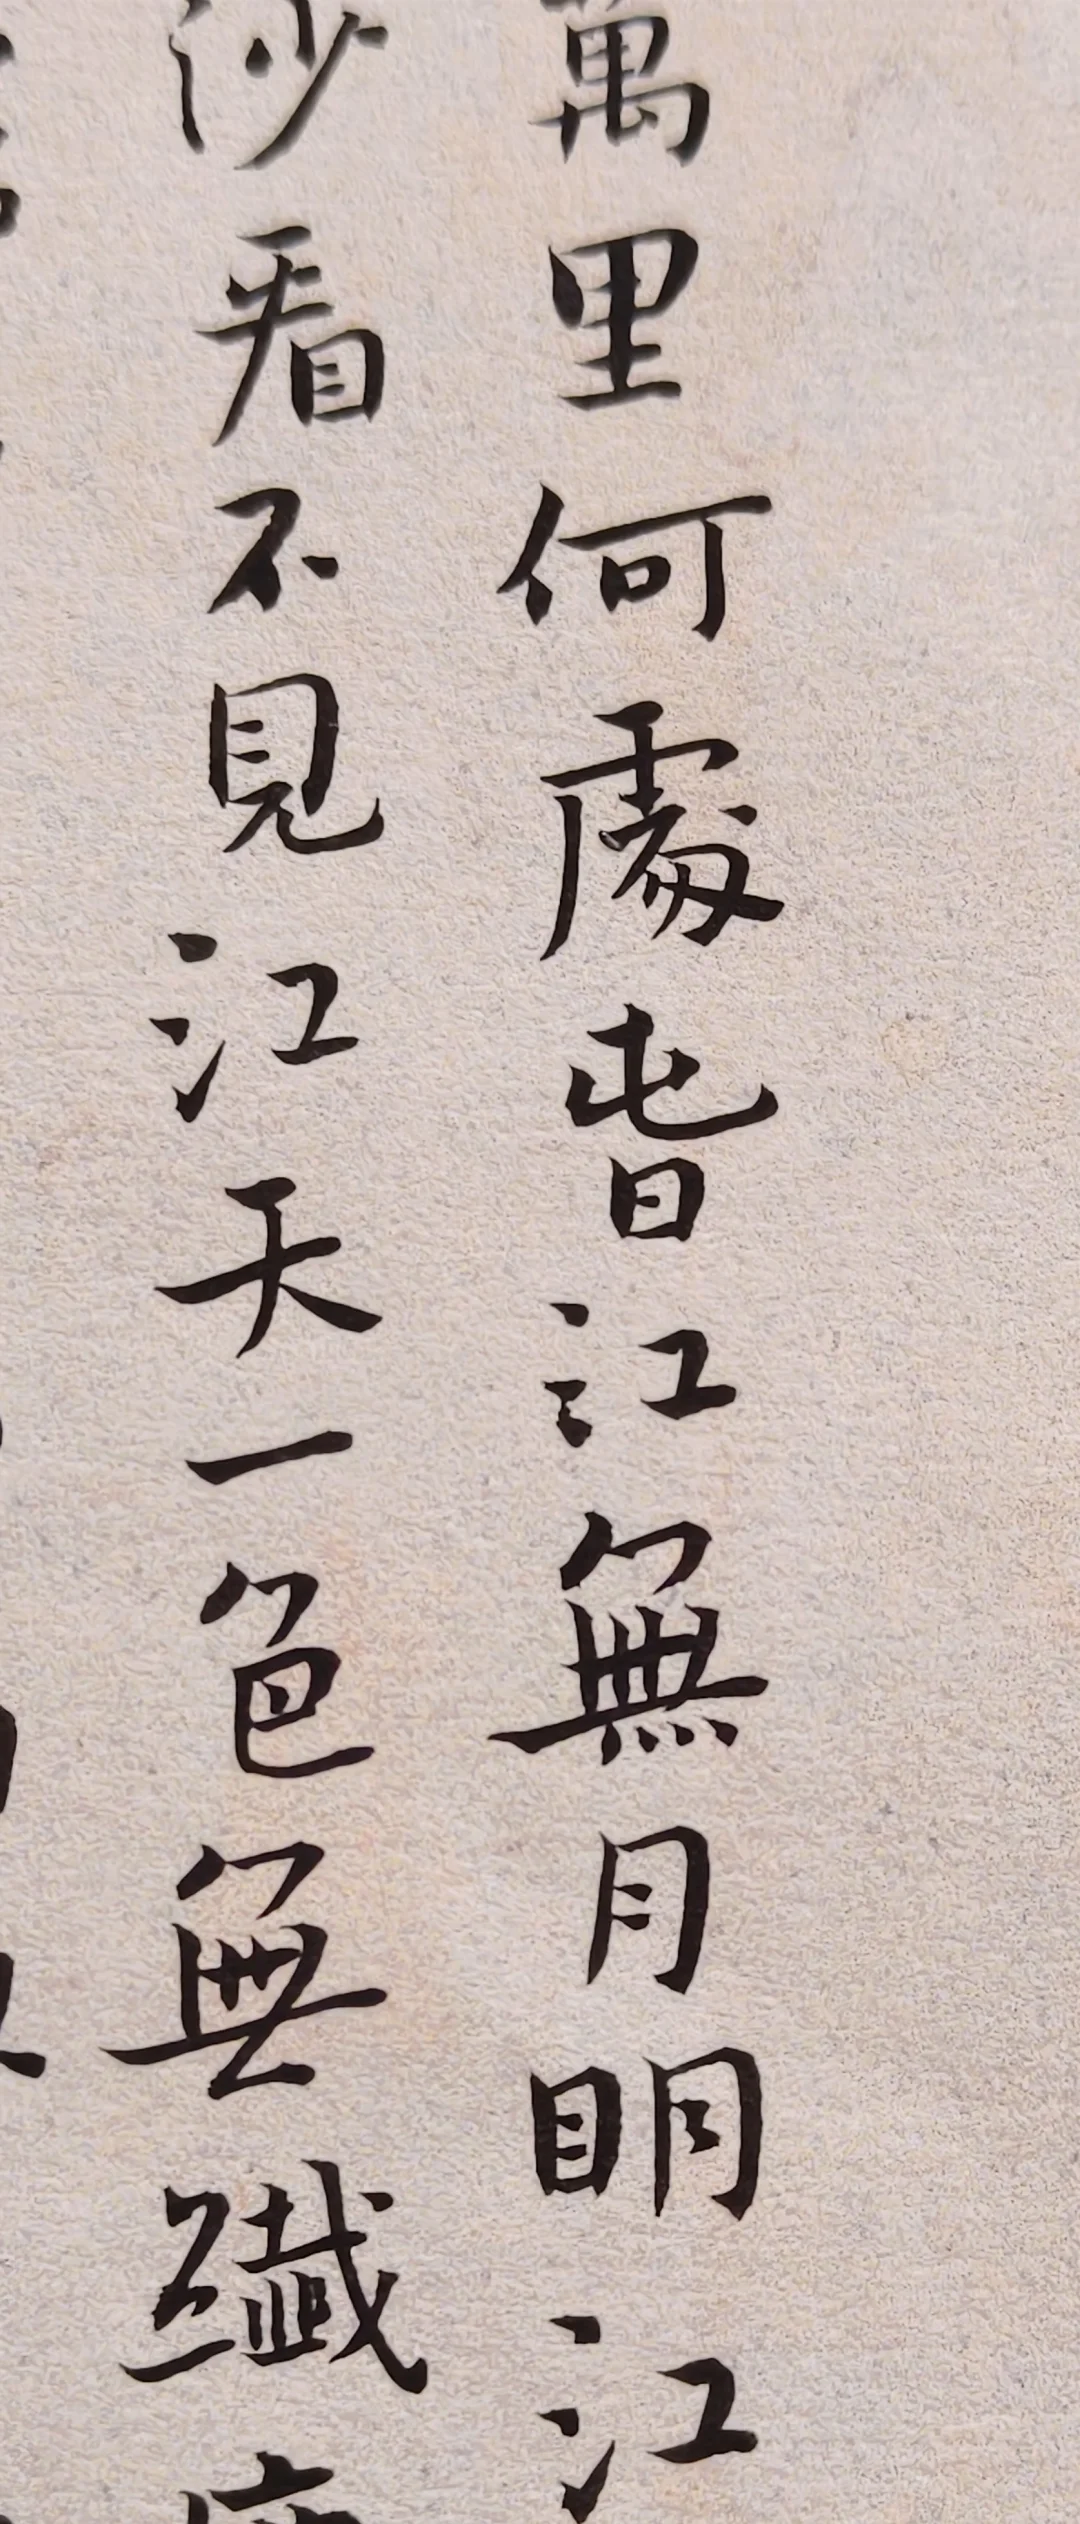 萬里何處春江無月明江
沙看不見江天一色無纖塵